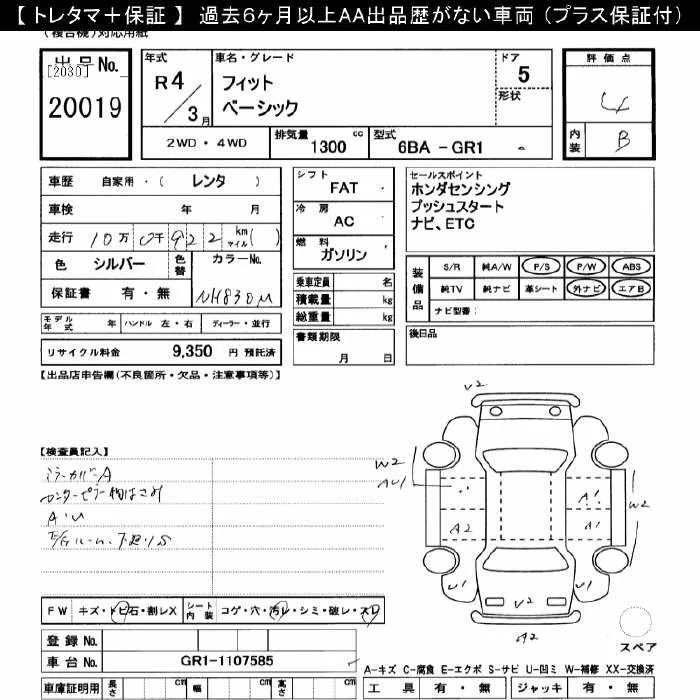 【 トレタマ＋保証 】 過去６ヶ月以上ＡＡ出品歴がない車両（プラス保証付）
(複合機)対応用紙
出品No.
[2030]
20019
年式
R4/3月
車名・グレード
フィット
ベーシック
ドア
5
形状
評価点
4
内装
B
2WD・4WD
排気量
1300
cc
型式
6BA － GR1
車歴 自家用・( レンタ )
車検 年 月
走行 10万 0千 922 km マイル( )
色 シルバー
色替
カラーNo.
NH830M
保証書 有・無
モデル年式 年 ハンドル 左・右 ディーラー・並行
リサイクル料金 9,350 円 預託済
シフト
FAT
冷房
AC
燃料
ガソリン
乗車定員 名
積載量 kg
総重量 kg
書類期限
月 日
セールスポイント
ホンダセンシング
プッシュスタート
ナビ、ETC
装備品
S/R 純A/W P/S P/W ABS
純TV 純ナビ 革シート 外ナビ エアB
ナビ型番：
後日品
【出品店申告欄(不良箇所・欠品・注意事項等)】
【検査員記入】
ミラーカバーA
A・U
U2
W2
AU1
A2
A1
A1
W2
U1
U2
U1
A2
スペア
FW キズ・トビ石・割レX
シート内装 コゲ・穴・汚レ・シミ・破レ・スレ
登録 No.
車台 No. GR1-1107585
車庫証明用 長さ cm 幅 cm 高さ cm
A－キズ C－腐食 E－エクボ S－サビ U－凹ミ W－補修 XX－交換済
工具 有・無 ジャッキ 有・無